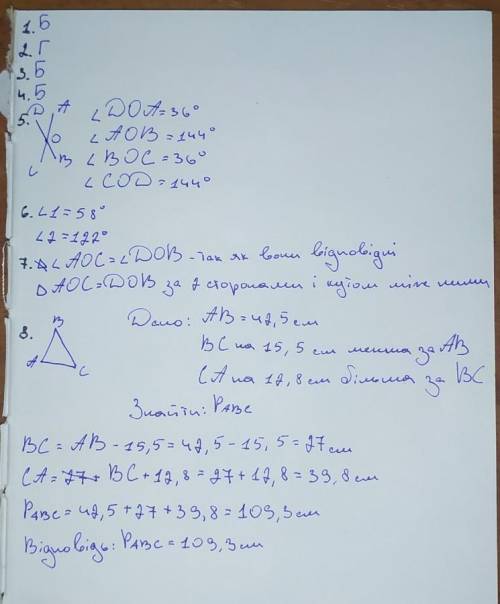 1. Б
2. Г
3. Б
4. Б
5. D A O B C
∠DOA=36°
∠AOB=144°
∠BOC=36°
∠COD=144°
6. ∠1=58°
∠2=122°
7. ∠AOC=∠DOB - так як вони відповідні
△AOC=DOB за 2 сторонами і кутом між ними
8. B A C
Дано: AB=42,5см
BC на 15,5 см менша за AB
CA на 12,8см більша за BC
Знайти: PABC
BC = AB - 15,5 = 42,5 - 15,5 = 27см
CA = 27+ BC + 12,8 = 27 + 12,8 = 39,8см
PABC = 42,5 + 27 + 39,8 = 109,3см
Відповідь: PABC = 109,3см